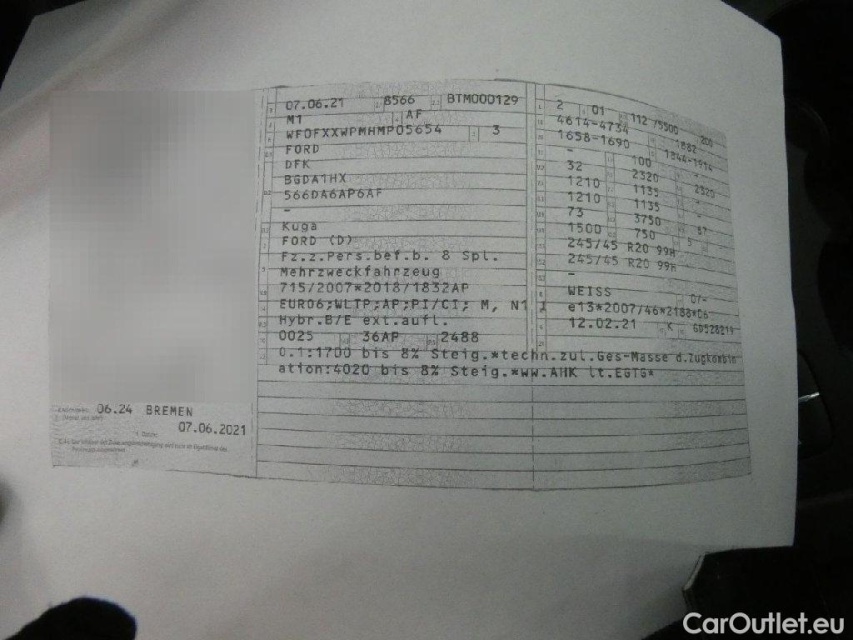 07.06.21 8566 BTM000129
M1 AF
WF0FXXWPMHMP05654 3
FORD
DFK
BGDA1HX
566DA6AP6AF
-
Kuga
FORD (D)
Fz.z.Pers.bef.b. 8 Spl.
Mehrzweckfahrzeug
715/2007*2018/1832AP
EURO6;WLTP;AP;PI/CI; M, N1 I
Hybr.B/E ext.aufl.
0025 36AP 2488
2 01 112 /5500 200
4614-4734 1882
1658-1690 1844-1914
- 100 -
32 2320 2320
1210 1135 -
1210 1135 -
73 3750 57
1500 750 5
245/45 R20 99H
245/45 R20 99H
-
WEISS 07-
e13*2007/46*2188*06
12.02.21 K GD528219
0.1:1700 bis 8% Steig.*techn.zul.Ges-Masse d.Zugkombin
ation:4020 bis 8% Steig.*ww.AHK lt.EGTG*
06.24 BREMEN
07.06.2021
CarOutlet.eu